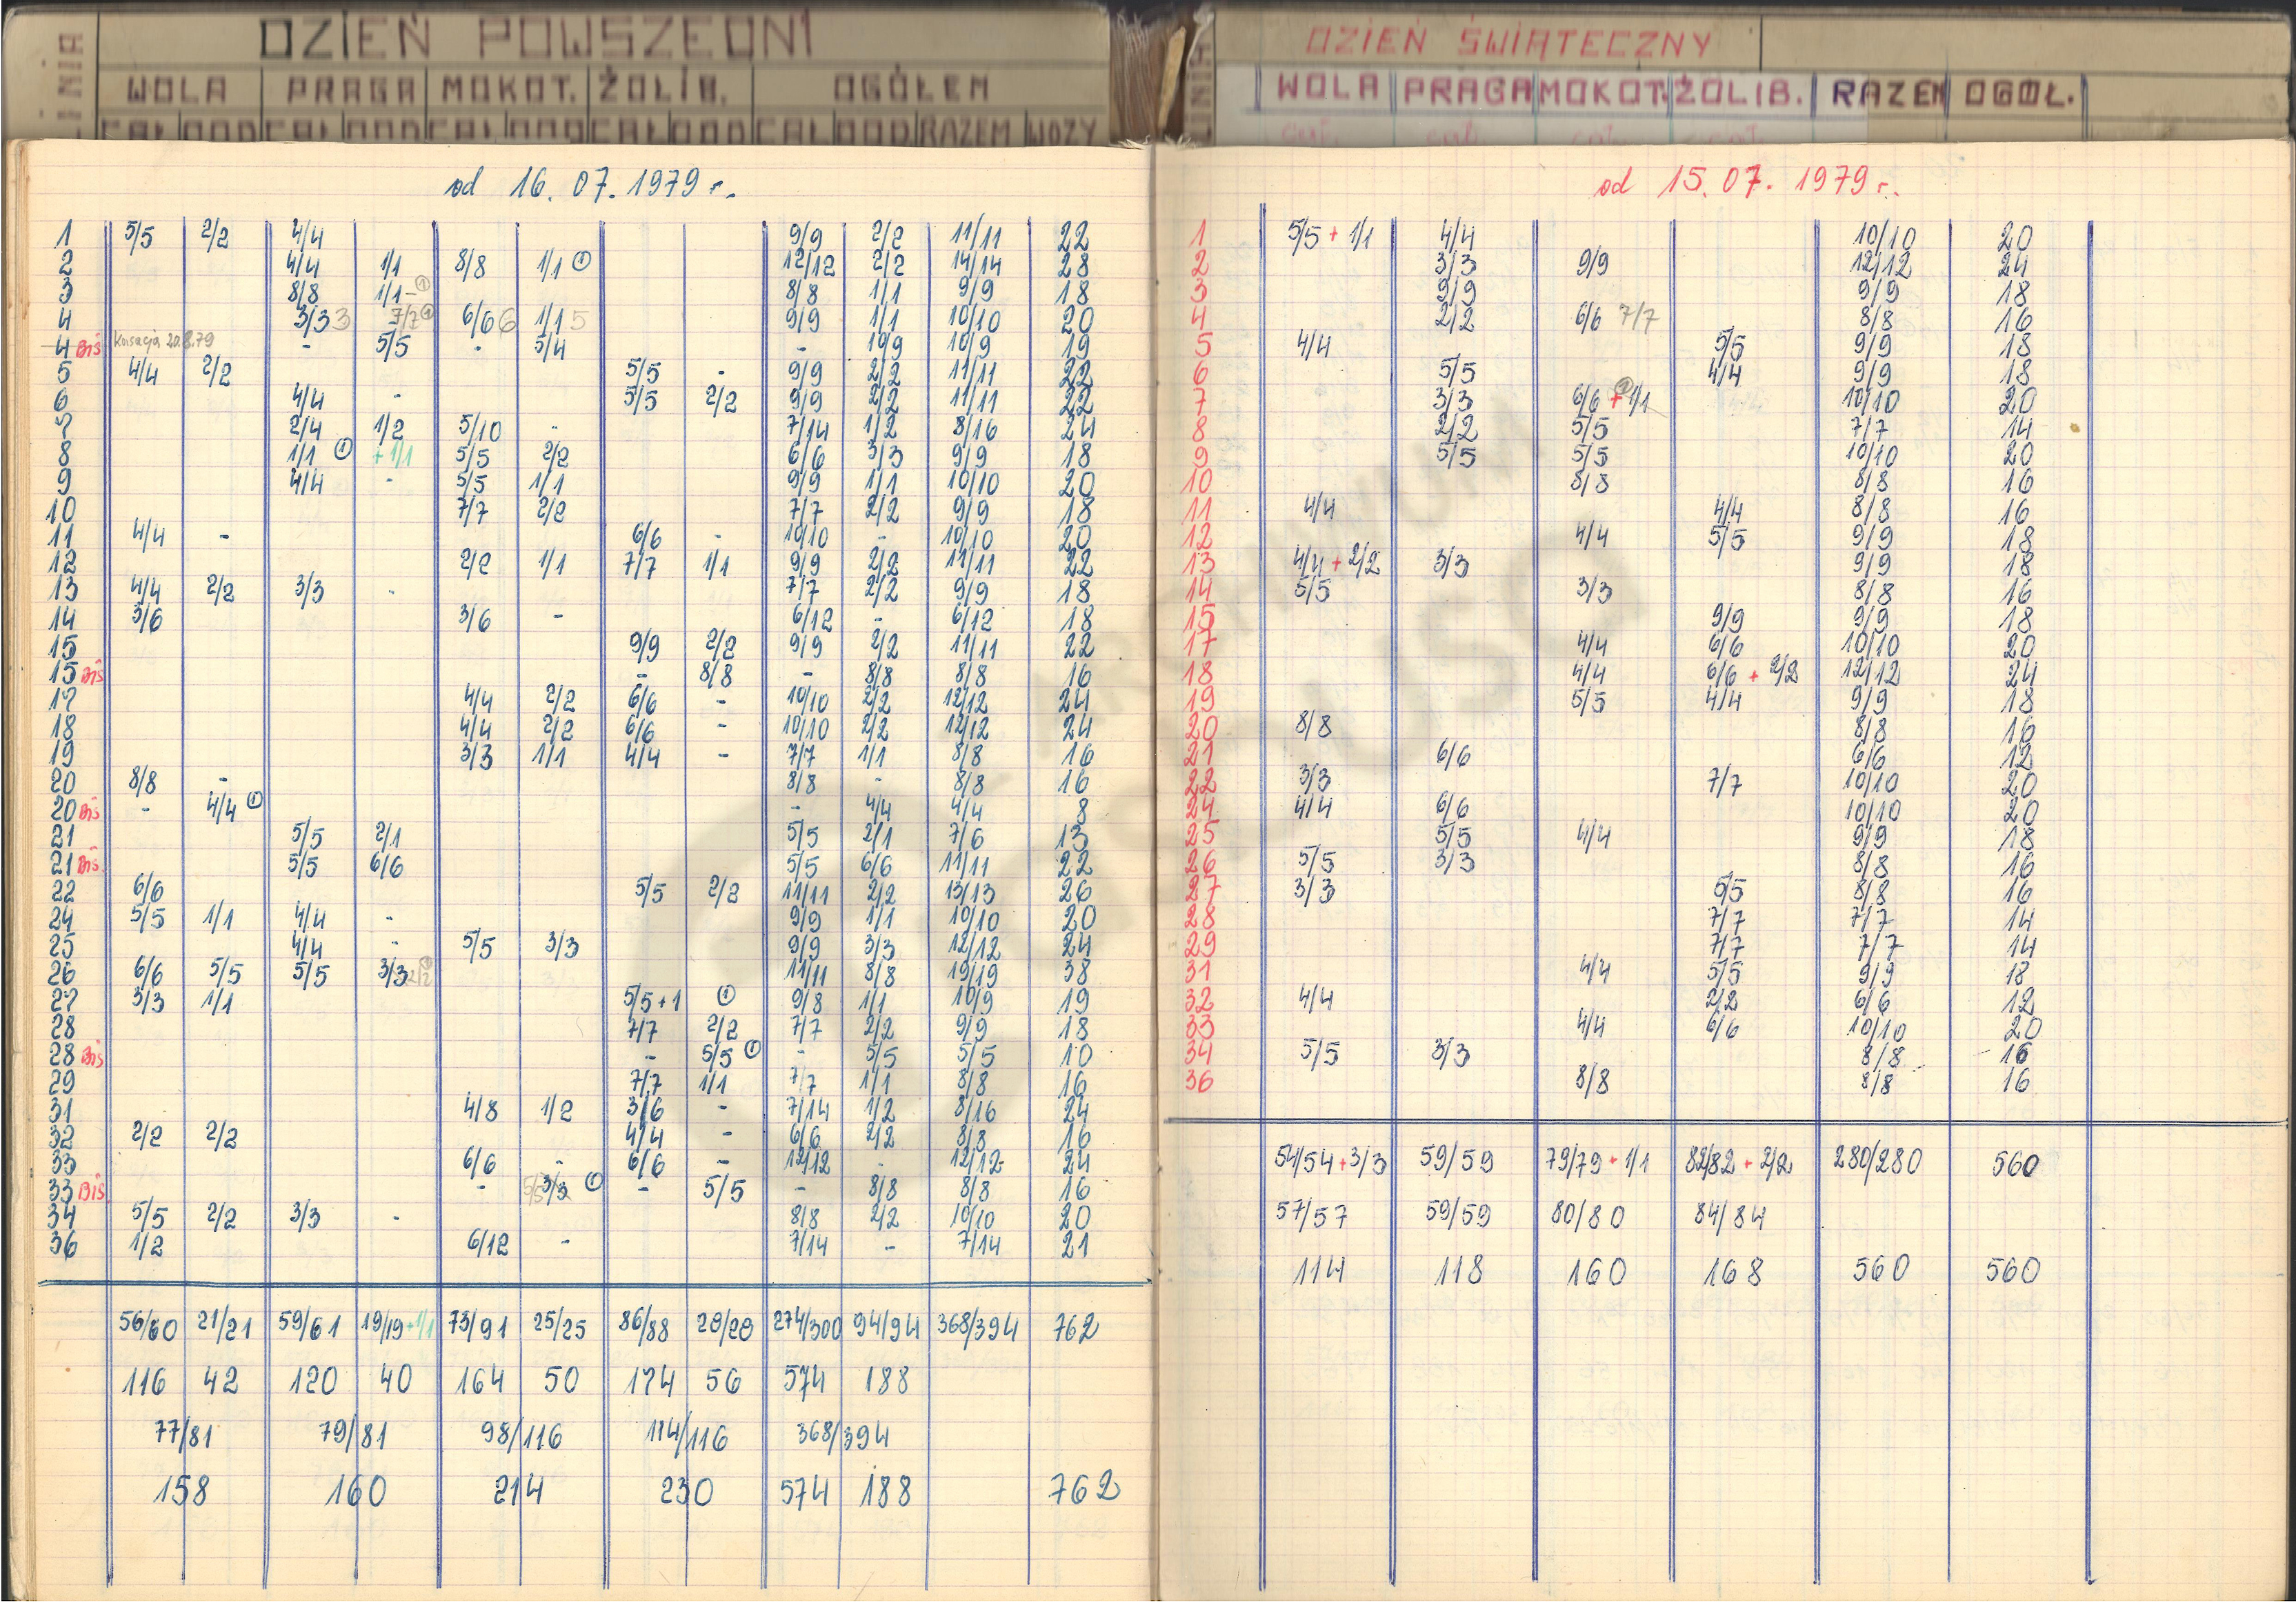 DZIEŃ POWSZEDNI
LINIA
WOLA PRAGA MOKOT. ŻOLIB. OGÓŁEM
CAŁ DOD CAŁ DOD CAŁ DOD CAŁ DOD CAŁ DOD RAZEM WOZY
od 16.07.1979 r.
1 5/5 2/2 4/4 9/9 2/2 11/11 22
2 4/4 1/1 8/8 1/1 ① 12/12 2/2 14/14 28
3 8/8 1/1 - ① 8/8 1/1 9/9 18
4 3/3 3 7/7 ① 6/6 6 1/1 5 9/9 1/1 10/10 20
4 Bis Kasacja 20.8.79 - 5/5 - 5/4 - 10/9 10/9 19
5 4/4 2/2 5/5 - 9/9 2/2 11/11 22
6 4/4 - 5/5 2/2 9/9 2/2 11/11 22
7 2/4 1/2 5/10 - 7/14 1/2 8/16 24
8 1/1 ① + 1/1 5/5 2/2 6/6 3/3 9/9 18
9 4/4 - 5/5 1/1 9/9 1/1 10/10 20
10 7/7 2/2 7/7 2/2 9/9 18
11 4/4 - 6/6 - 10/10 - 10/10 20
12 2/2 1/1 7/7 1/1 9/9 2/2 11/11 22
13 4/4 2/2 3/3 - 7/7 2/2 9/9 18
14 3/6 3/6 - 6/12 - 6/12 18
15 9/9 2/2 9/9 2/2 11/11 22
15 Bis - 8/8 - 8/8 8/8 16
17 4/4 2/2 6/6 - 10/10 2/2 12/12 24
18 4/4 2/2 6/6 - 10/10 2/2 12/12 24
19 3/3 1/1 4/4 - 7/7 1/1 8/8 16
20 8/8 - 8/8 - 8/8 16
20 Bis - 4/4 ① - 4/4 4/4 8
21 5/5 2/1 5/5 2/1 7/6 13
21 Bis 5/5 6/6 5/5 6/6 11/11 22
22 6/6 5/5 2/2 11/11 2/2 13/13 26
24 5/5 1/1 4/4 - 9/9 1/1 10/10 20
25 4/4 - 5/5 3/3 9/9 3/3 12/12 24
26 6/6 5/5 5/5 3/3 2/2 ① 11/11 8/8 19/19 38
27 3/3 1/1 5/5 + 1 ① 9/8 1/1 10/9 19
28 7/7 2/2 7/7 2/2 9/9 18
28 Bis - 5/5 ① - 5/5 5/5 10
29 7/7 1/1 7/7 1/1 8/8 16
31 4/8 1/2 3/6 - 7/14 1/2 8/16 24
32 2/2 2/2 4/4 - 6/6 2/2 8/8 16
33 6/6 - 6/6 - 12/12 - 12/12 24
33 Bis - 3/3 ① - 5/5 - 8/8 8/8 16
34 5/5 2/2 3/3 - 8/8 2/2 10/10 20
36 1/2 6/12 - 7/14 - 7/14 21
56/60 21/21 59/61 19/19+1/1 73/91 25/25 86/88 28/28 274/300 94/94 368/394 762
116 42 120 40 164 50 174 56 574 188
77/81 79/81 98/116 114/116 368/394
158 160 214 230 574 188 762
DZIEŃ ŚWIĄTECZNY
LINIA
WOLA PRAGA MOKOT. ŻOLIB. RAZEM OGÓŁ.
od 15.07.1979 r.
1 5/5 + 1/1 4/4 10/10 20
2 3/3 9/9 12/12 24
3 9/9 9/9 18
4 2/2 6/6 7/7 8/8 16
5 4/4 5/5 9/9 18
6 5/5 4/4 9/9 18
7 3/3 6/6 + 1/1 10/10 20
8 2/2 5/5 7/7 14
9 5/5 5/5 10/10 20
10 8/8 8/8 16
11 4/4 4/4 8/8 16
12 4/4 5/5 9/9 18
13 4/4 + 2/2 3/3 9/9 18
14 5/5 3/3 8/8 16
15 9/9 9/9 18
17 4/4 6/6 10/10 20
18 4/4 6/6 + 2/2 12/12 24
19 5/5 4/4 9/9 18
20 8/8 8/8 16
21 6/6 6/6 12
22 3/3 7/7 10/10 20
24 4/4 6/6 10/10 20
25 5/5 4/4 9/9 18
26 5/5 3/3 8/8 16
27 3/3 5/5 8/8 16
28 7/7 7/7 14
29 7/7 7/7 14
31 4/4 5/5 9/9 18
32 4/4 2/2 6/6 12
33 4/4 6/6 10/10 20
34 5/5 3/3 8/8 16
36 8/8 8/8 16
54/54 + 3/3 59/59 79/79 + 1/1 82/82 + 2/2 280/280 560
57/57 59/59 80/80 84/84
114 118 160 168 560 560